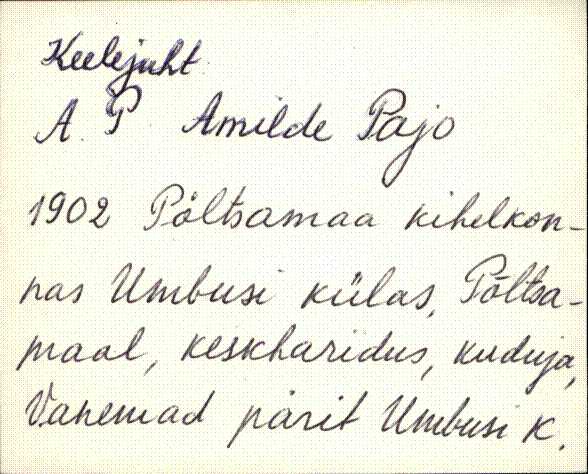 Keelejuht
A. P Amilde Pajo
1902 Põltsamaa kihelkon-
nas Umbusi külas, Põltsa-
maal, keskharidus, kuduja,
Vanemad pärit Umbusi k.